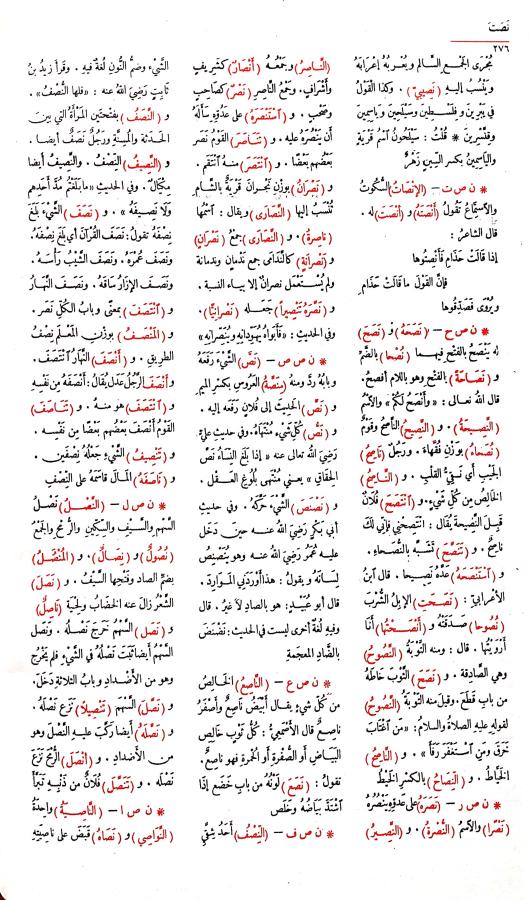 نَصَتَ
٢٧٦
مُجْرَى الجَمْعِ السَّالِمِ ويُعْرِبُهُ إِعْرَابَهُ
ويَنْسُبُ إليه (نَصِيبِيٌّ) . وكذا القَوْلُ
في يَبْرِينَ وفِلَسْطِينَ وسَيْلَحِينَ ويَاسِمِينَ
وقِنَّسْرِينَ * قُلْتُ : سَيْلَحُونَ اسْمُ قَرْيَةٍ
واليَاسَمِينُ بكسر السِّينِ زَهْرٌ
* ن ص ت — (الإِنْصَاتُ) السُّكُوتُ
والاسْتِمَاعُ تَقُولُ (أَنْصَتَهُ) و (أَنْصَتَ) له .
قال الشاعر :
إذا قالَتْ حَذَامِ فَأَنْصِتُوها
فإنَّ القَوْلَ ما قالَتْ حَذَامِ
ويُرْوَى فَصَدِّقُوها
* ن ص ح — (نَصَحَهُ) و (نَصَحَ)
له يَنْصَحُ بالفتح فيهما (نُصْحًا) بالضَّمِّ
و (نَصَاحَةً) بالفتح وهو باللام أفصحُ .
قال الله تعالى : «وأَنْصَحُ لَكُمْ» والاسْمُ
(النَّصِيحَةُ) . و (النَّصِيحُ) النَّاصِحُ وقَوْمٌ
(نُصَحاءُ) بوزن فُقَهَاء . ورجُلٌ (نَاصِحُ)
الجَيْبِ أي نَقِيُّ القلبِ . و (النَّاصِحُ)
الخَالِصُ من كُلِّ شيءٍ . و (انْتَصَحَ) فُلَانٌ
قَبِلَ النَّصِيحَةَ يُقَالُ : انْتَصِحْنِي فإنِّي لَكَ
نَاصِحٌ . و (تَنَصَّحَ) تَشَبَّهَ بالنُّصَحَاءِ .
و (اسْتَنْصَحَهُ) عَدَّهُ نَصِيحًا . قال ابنُ
الأَعْرابيِّ : (نَصَحَتِ) الإِبِلُ الشُّرْبَ
(نُصُوحًا) صَدَقَتْهُ و (أَنْصَحْتُهَا) أَنَا
أَرْوَيْتُهَا . قال : ومنه التَّوْبَةُ (النَّصُوحُ)
وهي الصَّادِقَةُ . و (نَصَحَ) الثَّوْبَ خَاطَهُ
من باب قَطَعَ . وقيل منه التَّوْبَةُ (النَّصُوحُ)
لقوله عليه الصلاةُ والسلامُ : «مَنِ اغْتَابَ
خَرَقَ ومَنِ اسْتَغْفَرَ رَفَأَ» . و (النَّاصِحُ)
الخَيَّاطُ . و (النِّصَاحُ) بالكسر الخَيْطُ
* ن ص ر — (نَصَرَهُ) على عَدُوِّهِ يَنْصُرُهُ
(نَصْرًا) والاسْمُ (النُّصْرَةُ) . و (النَّصِيرُ)
(النَّاصِرُ) وجَمْعُهُ (أَنْصَارٌ) كشَرِيفٍ
وأَشْرَافٍ . وجَمْعُ النَّاصِرِ (نَصْرٌ) كصَاحِبٍ
وصَحْبٍ . و (اسْتَنْصَرَهُ) على عَدُوِّهِ سَأَلَهُ
أَنْ يَنْصُرَهُ عليه . و (تَنَاصَرَ) القَوْمُ نَصَرَ
بَعْضُهُمْ بَعْضًا . و (انْتَصَرَ) منهُ انْتَقَمَ .
و (نَصْرَانُ) بوَزْنِ نَجْرَانَ قَرْيَةٌ بالشَّامِ
تُنْسَبُ إليها (النَّصَارَى) ويقال : اسْمُهَا
(نَاصِرَةُ) . و (النَّصَارَى) جمعُ (نَصْرَانٍ)
و (نَصْرَانَةٍ) كالنَّدَامَى جمعِ نَدْمَانٍ ونَدْمَانَةٍ
ولم يُسْتَعْمَلْ نَصْرَانٌ إلا بِيَاءِ النِّسبة .
و (نَصَّرَهُ تَنْصِيرًا) جَعَلَهُ (نَصْرَانِيًّا) .
وفي الحديث : «فأَبَوَاهُ يُهَوِّدَانِهِ ويُنَصِّرَانِهِ»
* ن ص ص — (نَصَّ) الشَّيْءَ رَفَعَهُ
وبابُهُ رَدَّ ومنهُ (مِنَصَّةُ) العَرُوسِ بكسر الميم
و (نَصَّ) الحَدِيثَ إلى فُلَانٍ رَفَعَهُ إليه .
و (نَصُّ) كُلِّ شَيْءٍ مُنْتَهَاهُ . وفي حديثِ عَلِيٍّ
رَضِيَ اللهُ تعالى عنه «إذا بَلَغَ النِّسَاءُ نَصَّ
الحِقَاقِ» يعني مُنْتَهَى بُلُوغِ العَقْلِ .
و (نَصْنَصَ) الشَّيْءَ حَرَّكَهُ . وفي حديثِ
أبي بَكْرٍ رَضِيَ اللهُ عنه حينَ دَخَلَ
عليه عُمَرُ رَضِيَ اللهُ عنه وهو يُنَصْنِصُ
لِسَانَهُ ويقولُ : هذا أَوْرَدَنِي المَوَارِدَ .
قال أبو عُبَيْدٍ : هو بالصاد لا غَيْرُ . قال
وفيه لُغَةٌ أخرى ليست في الحديث : نَضْنَضَ
بالضَّادِ المعجمةِ
* ن ص ع — (النَّاصِعُ) الخَالِصُ
من كُلِّ شيءٍ يقال أَبْيَضُ نَاصِعٌ وأَصْفَرُ
نَاصِعٌ قال الأَصْمَعِيُّ : كُلُّ ثَوْبٍ خَالِصِ
البَيَاضِ أو الصُّفْرَةِ أو الحُمْرَةِ فهو نَاصِعٌ .
تقولُ : (نَصَعَ) لَوْنُهُ من باب خَضَعَ إذا
اشْتَدَّ بَيَاضُهُ وخَلَصَ
* ن ص ف — (النِّصْفُ) أَحَدُ شِقَّيِ
الشَّيْءِ وضَمُّ النُّونِ لُغَةٌ فيه . وقرأ زيدُ بنُ
ثابتٍ رَضِيَ اللهُ عنه : «فلها النُّصْفُ» .
و (النَّصَفُ) بفتحتين المَرْأَةُ التي بينَ
الحَدَثَةِ والمُسِنَّةِ ورَجُلٌ نَصَفٌ أيضا .
و (النَّصِيفُ) النِّصْفُ . والنَّصِيفُ أيضا
مِكْيَالٌ . وفي الحديث «ما بَلَغْتُمْ مُدَّ أَحَدِهِمْ
ولا نَصِيفَهُ» . و (نَصَفَ) الشَّيْءَ بَلَغَ
نِصْفَهُ تقولُ : نَصَفَ القُرْآنَ أي بَلَغَ نِصْفَهُ .
ونَصَفَ عُمْرَهُ . ونَصَفَ الشَّيْبُ رَأْسَهُ .
ونَصَفَ الإِزَارُ سَاقَهُ . ونَصَفَ النَّهَارُ
و (انْتَصَفَ) بمعنًى وبابُ الكُلِّ نَصَرَ .
و (المَنْصَفُ) بوزن المَعْلَمِ نِصْفُ
الطريقِ . و (أَنْصَفَ) النَّهَارُ انْتَصَفَ .
و (أَنْصَفَ) الرَّجُلُ عَدَلَ يُقَالُ : أَنْصَفَهُ مِن نَفْسِهِ
و (انْتَصَفَ) هو منهُ . و (تَنَاصَفَ)
القَوْمُ أَنْصَفَ بَعْضُهُمْ بَعْضًا مِن نَفْسِهِ .
و (تَنْصِيفُ) الشَّيْءِ جَعْلُهُ نِصْفَيْنِ .
و (نَاصَفَهُ) المَالَ قَاسَمَهُ على النِّصْفِ
* ن ص ل — (النَّصْلُ) نَصْلُ
السَّهْمِ والسَّيْفِ والسِّكِّينِ والرُّمْحِ والجَمْعُ
(نُصُولٌ) و (نِصَالٌ) . و (المُنْصُلُ)
بضمِّ الصادِ وفَتْحِهَا السَّيْفُ . و (نَصَلَ)
الشَّعْرُ زالَ عنه الخِضَابُ ولِحْيَةٌ (نَاصِلٌ)
و (نَصَلَ) السَّهْمُ خَرَجَ نَصْلُهُ . ونَصَلَ
السَّهْمُ أيضا ثَبَتَ نَصْلُهُ في الشَّيْءِ فلم يَخْرُجْ
وهو من الأَضْدادِ وبابُ الثلاثةِ دَخَلَ .
و (نَصَّلَ) السَّهْمَ (تَنْصِيلًا) نَزَعَ نَصْلَهُ .
و (نَصَّلَهُ) أيضا رَكَّبَ عليه النَّصْلَ وهو
من الأَضْدادِ . و (أَنْصَلَ) الرُّمْحَ نَزَعَ
نَصْلَهُ . و (تَنَصَّلَ) فُلَانٌ من ذَنْبِهِ تَبَرَّأَ
* ن ص ا — (النَّاصِيَةُ) وَاحِدَةُ
(النَّوَاصِي) و (نَصَاهُ) قَبَضَ على نَاصِيَتِهِ